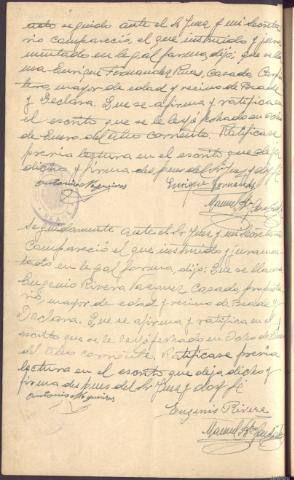 acto seguido ante el Sr Juez y mi Secreta
rio compareció, el que instruido y jura
mentado en legal forma, dijo: Que se lla
ma Enrique Fernandez Rivas, Casado Can
tero, mayor de edad y vecino de
y Declara. Que se afirma y ratifica en
el escrito que se le leyó fechado en ocho
de Enero del año corriente. Ratificase
previa lectura en el escrito que deja
dicho y firma despues del Sr Juez y doy fé
Antonio Nogueiras
Enrique Fernandez
Manuel
Seguidamente ante el Sr Juez y mi Secretario
Compareció el que instruido y juramen
tado en legal forma, dijo: Que se llama
Eugenio Rivera Casado propieta
rio, mayor de edad y vecino de y
Declara. Que se afirma y ratifica en el
escrito que se le leyó fechado en Ocho de
del año corriente, Ratificase previa
lectura en el escrito que deja dicho y
firma despues del Sr Juez y doy fé
Antonio Nogueiras
Eugenio Rivera
Manuel